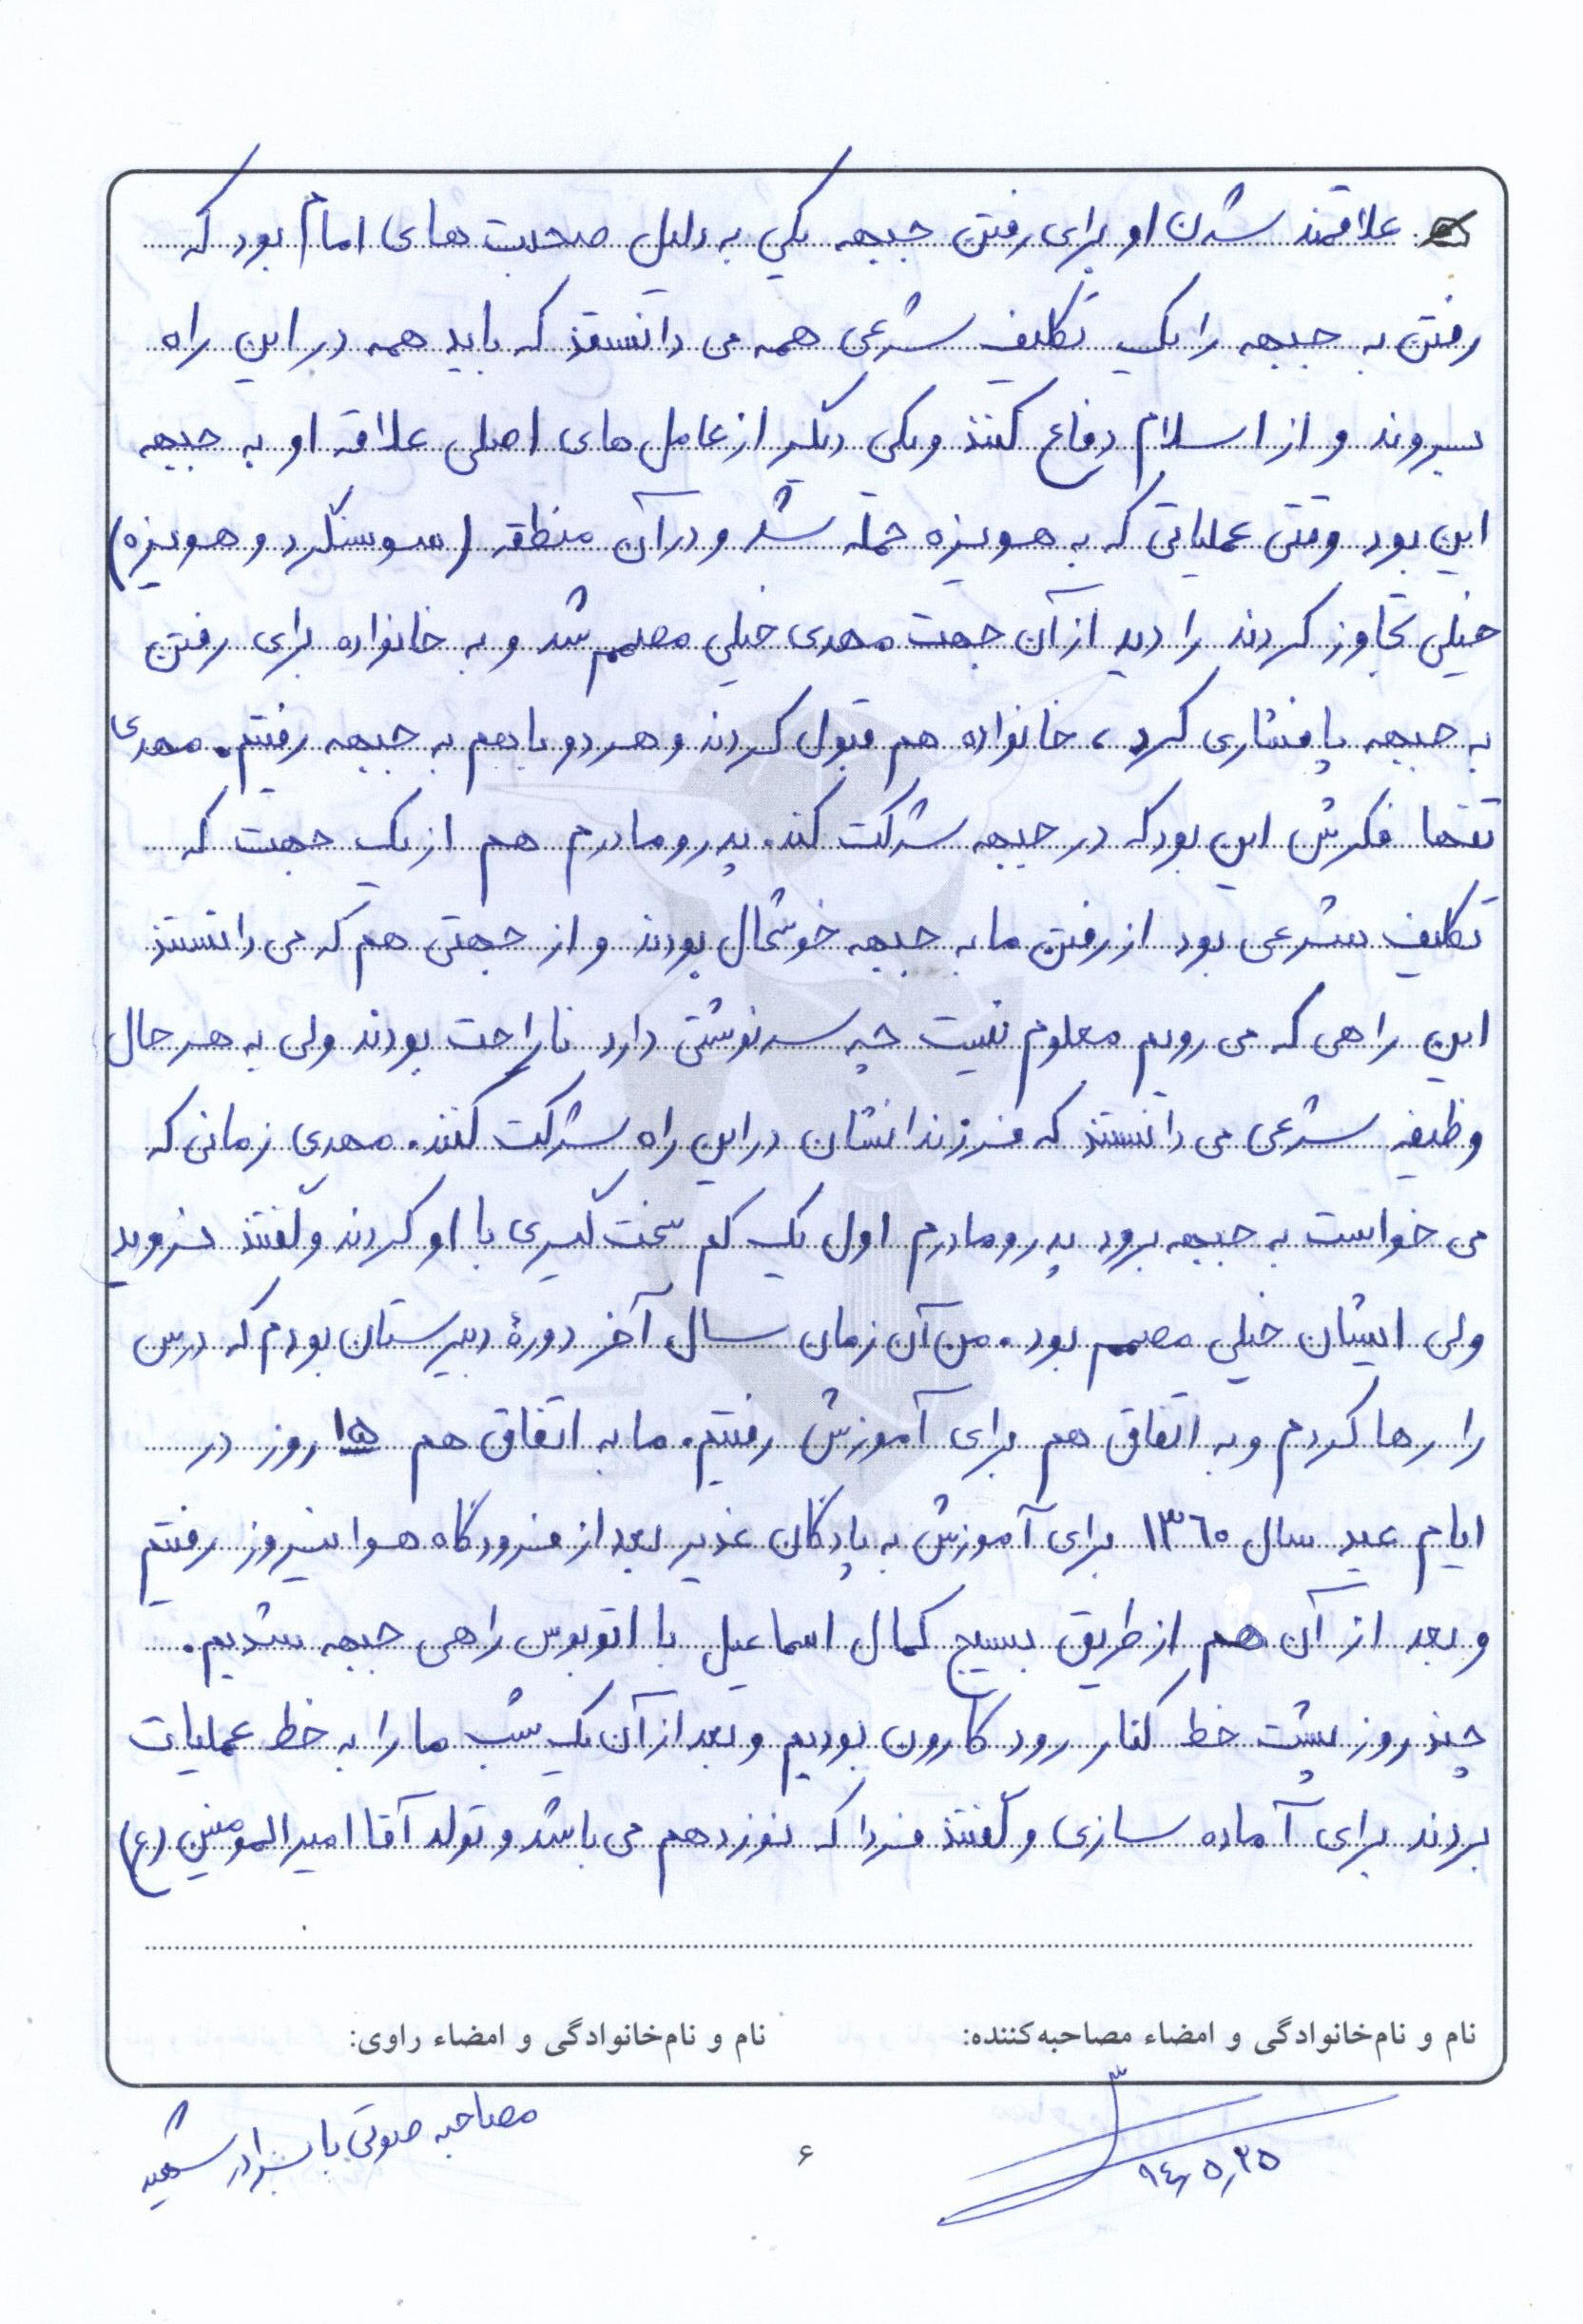 علاقمند شدن او برای رفتن جبهه یکی به دلیل صحبت های امام بود که
رفتن به جبهه را یک تکلیف شرعی همه می دانستند که باید همه در این راه
بروند و از اسلام دفاع کنند و یکی دیگر از عامل های اصلی علاقه او به جبهه
این بود وقتی عملیاتی که به هویزه حمله شد و در آن منطقه (سوسنگرد و هویزه)
خیلی تجاوز کردند را دید از آن جهت مهدی خیلی مصمم شد و به خانواده برای رفتن
به جبهه پافشاری کرد، خانواده هم قبول کردند و هر دو باهم به جبهه رفتیم. مهدی
تنها فکرش این بود که در جبهه شرکت کند. پدر و مادرم هم از یک جهت که
تکلیف شرعی بود از رفتن ما به جبهه خوشحال بودند و از جهتی هم که می دانستند
این راهی که می رویم معلوم نیست چه سرنوشتی دارد ناراحت بودند ولی به هر حال
وظیفه شرعی می دانستند که فرزندانشان در این راه شرکت کنند. مهدی زمانی که
می خواست به جبهه برود پدر و مادرم اول یک کم سخت گیری با او کردند و گفتند نروید
ولی ایشان خیلی مصمم بود. من آن زمان سال آخر دورهٔ دبیرستان بودم که درس
را رها کردم و به اتفاق هم برای آموزش رفتیم. ما به اتفاق هم ۱۵ روز در
ایام عید سال ۱۳۶۰ برای آموزش به پادگان غدیر بعد از فرودگاه هوانیروز رفتیم
و بعد از آن هم از طریق بسیج کمال اسماعیل با اتوبوس راهی جبهه شدیم.
چند روز پشت خط کنار رود کارون بودیم و بعد از آن یک شب ما را به خط عملیات
بردند برای آماده سازی و گفتند فردا که نوزدهم می باشد و تولد آقا امیرالمومنین (ع)
نام و نام‌خانوادگی و امضاء مصاحبه‌کننده: نام و نام‌خانوادگی و امضاء راوی:
۹۴,۵,۲۵ ۶ مصاحبه صوتی با برادر شهید